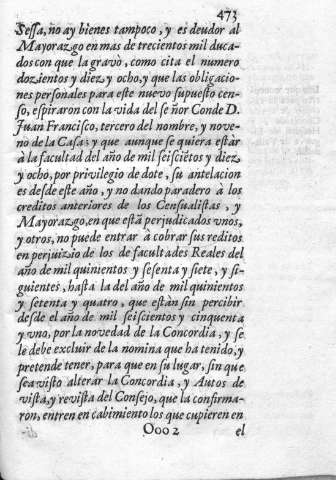 473
Sessa, no ay bienes tampoco, y es deudor al
Mayorazgo en mas de trecientos mil duca-
dos con que la gravò, como cita el numero
dozientos y diez y ocho, y que las obligacio-
nes personales para este nuevo supuesto cen-
so, espiraron con la vida del señor Conde D.
Juan Francisco, tercero del nombre, y nove-
no de la Casa; y que aunque se quiera estàr
à la facultad del año de mil seiscietos y diez
y ocho, por privilegio de dote, su antelacion
es desde este año, y no dando paradero à los
creditos anteriores de los Censualistas, y
Mayorazgo, en que està perjudicados vnos,
y otros, no puede entrar à cobrar sus reditos
en perjuizio de los de facultades Reales del
año de mil quinientos y sesenta y siete, y si-
guientes, hasta la del año de mil quinientos
y setenta y quatro, que estàn sin percibir
desde el año de mil seiscientos y cinquenta
y vno, por la novedad de la Concordia, y se
le debe excluir de la nomina que ha tenido, y
pretende tener, para que en su lugar, sin que
sea visto alterar la Concordia, y Autos de
vista, y revista del Consejo, que la confirma-
ron, entren en cabimiento los que cupieren en
Ooo 2 el